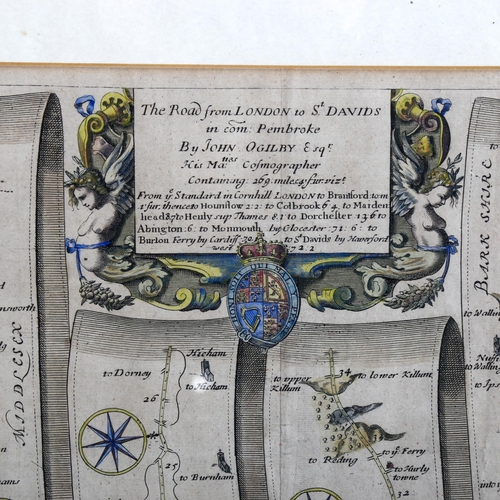 The Road from LONDON to St DAVIDS
in com: Pembroke
By JOHN OGILBY Esqr.
His Maties Cosmographer
Containing 269 miles 4 fur. vizt.
From ye Standard in Cornhill LONDON to Branford: 10m
1 fur. thence to Hounslow 2:2: to Colbrook 6 4 to Maiden
head 8 7 to Henly sup Thames 8.1 to Dorchester 13 6 to
Abington: 6: to Monmouth by Glocester: 71: 6: to
Burton Ferry by Cardiff to St Davids by Haverford
west 2
MIDDLESEX
BARK SHIRE
to Dorney
Hicham
to Hicham
26
25
to Burnham
to upper
Killum
34
to lower Killum
to Reding
to ye Ferry
to Hurly
towne
32